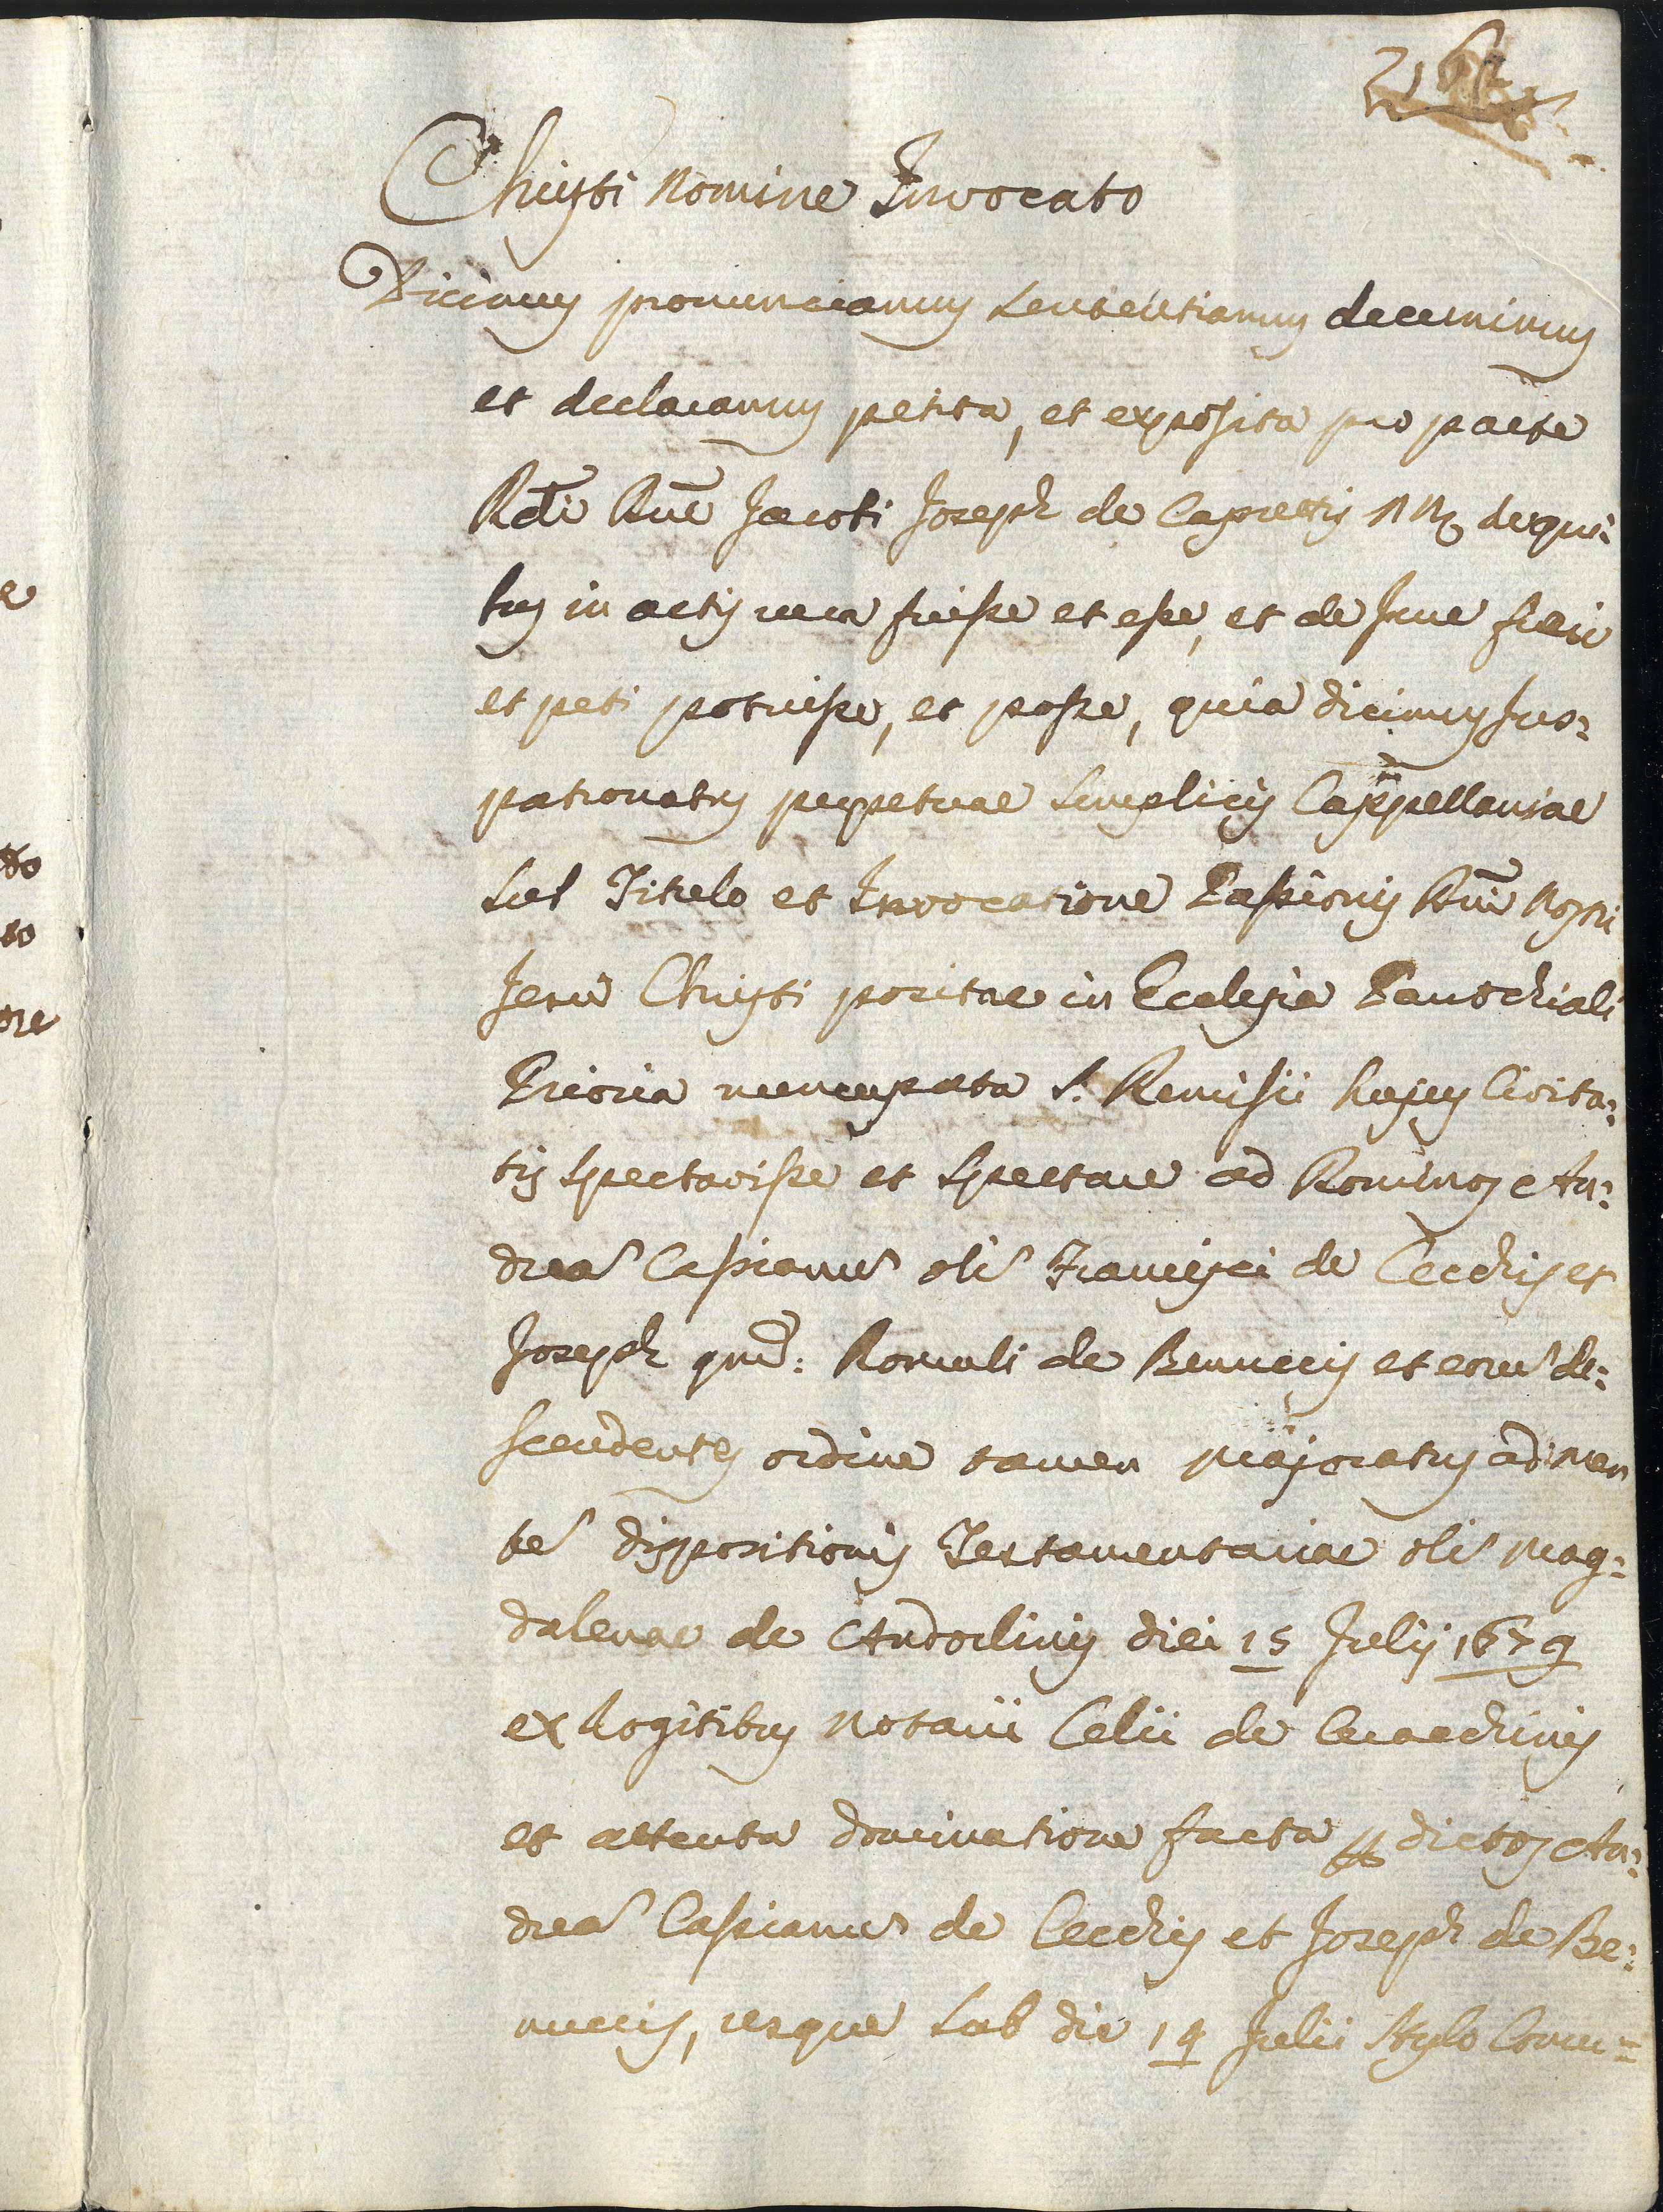 Christi Nomine Invocato
Dicimus pronunciamus sententiamus decernimus
et declaramus petita, et exposita pro parte
Rdi Dni Jacobi Joseph de Caprettis NN de qui=
bus in actis vera fuisse et esse, et de Jure fieri
et peti potuisse, et posse, quia dicimus Jus=
patronatus perpetuae simplicis Cappellaniae
sub Titulo et Invocatione Passionis Dni Nostri
Jesu Christi positae in Ecclesia Parrochiali
Prioria nuncupata S. Remisii hujus Civita=
tis spectavisse et spectare ad Dominos An=
drea Cassianu oli Francisci de Cecchis et
Joseph qnd: Romuli de Benuccis et eoru de=
scendentes ordine tamen Majoratus ad men
te dispositionis Testamentariae oli Mag=
dalenae de Andoclinis diei 15 Julij 1679
ex Rogitibus Notarii Celii de Ceracchinis
et attenta dominatione facta per dictos An=
drea Cassianu de Cecchis et Joseph de Be=
nuccis, usque sub die 14 Julii Stylo Comu=
do
to